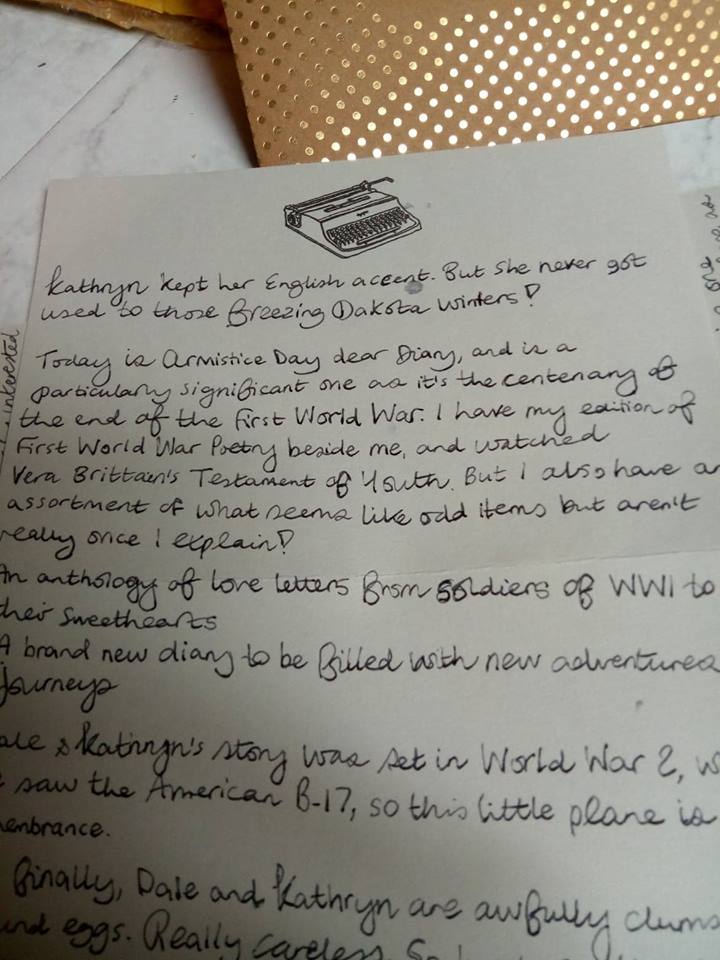 Kathryn kept her English accent. But she never got
used to those freezing Dakota winters!
Today is Armistice Day dear Diary, and is a
particularly significant one as it's the centenary of
the end of the First World War. I have my edition of
First World War Poetry beside me, and watched
Vera Brittain's Testament of Youth. But I also have an
assortment of what seems like odd items but aren't
really once I explain!
An anthology of love letters from soldiers of WW1 to
their sweethearts
A brand new diary to be filled with new adventures
Journeys
ale & Kathryn's story was set in World War 2, w
saw the American B-17, so this little plane is
membrance.
Finally, Dale and Kathryn are awfully clums
und eggs. Really careless. So
interested